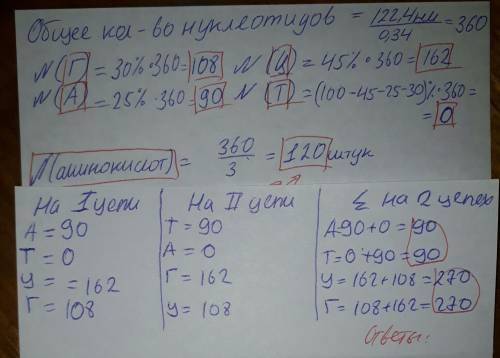 Общее кол-во нуклеотидов = 122,4нм / 0,34 = 360
N(Г) = 30% • 360 = 108 N(Ц) = 45% • 360 = 162
N(А) = 25% • 360 = 90 N(Т) = (100-45-25-30)% • 360 =
= 0
N(аминокислот) = 360 / 3 = 120 штук
На I цепи
А = 90
Т = 0
Ц = = 162
Г = 108
На II цепи
Т = 90
А = 0
Г = 162
Ц = 108
Σ на 2 цепях
А=90 + 0 = 90
Т=0 + 90 = 90
Ц = 162 + 108 = 270
Г = 108 + 162 = 270
Ответы: